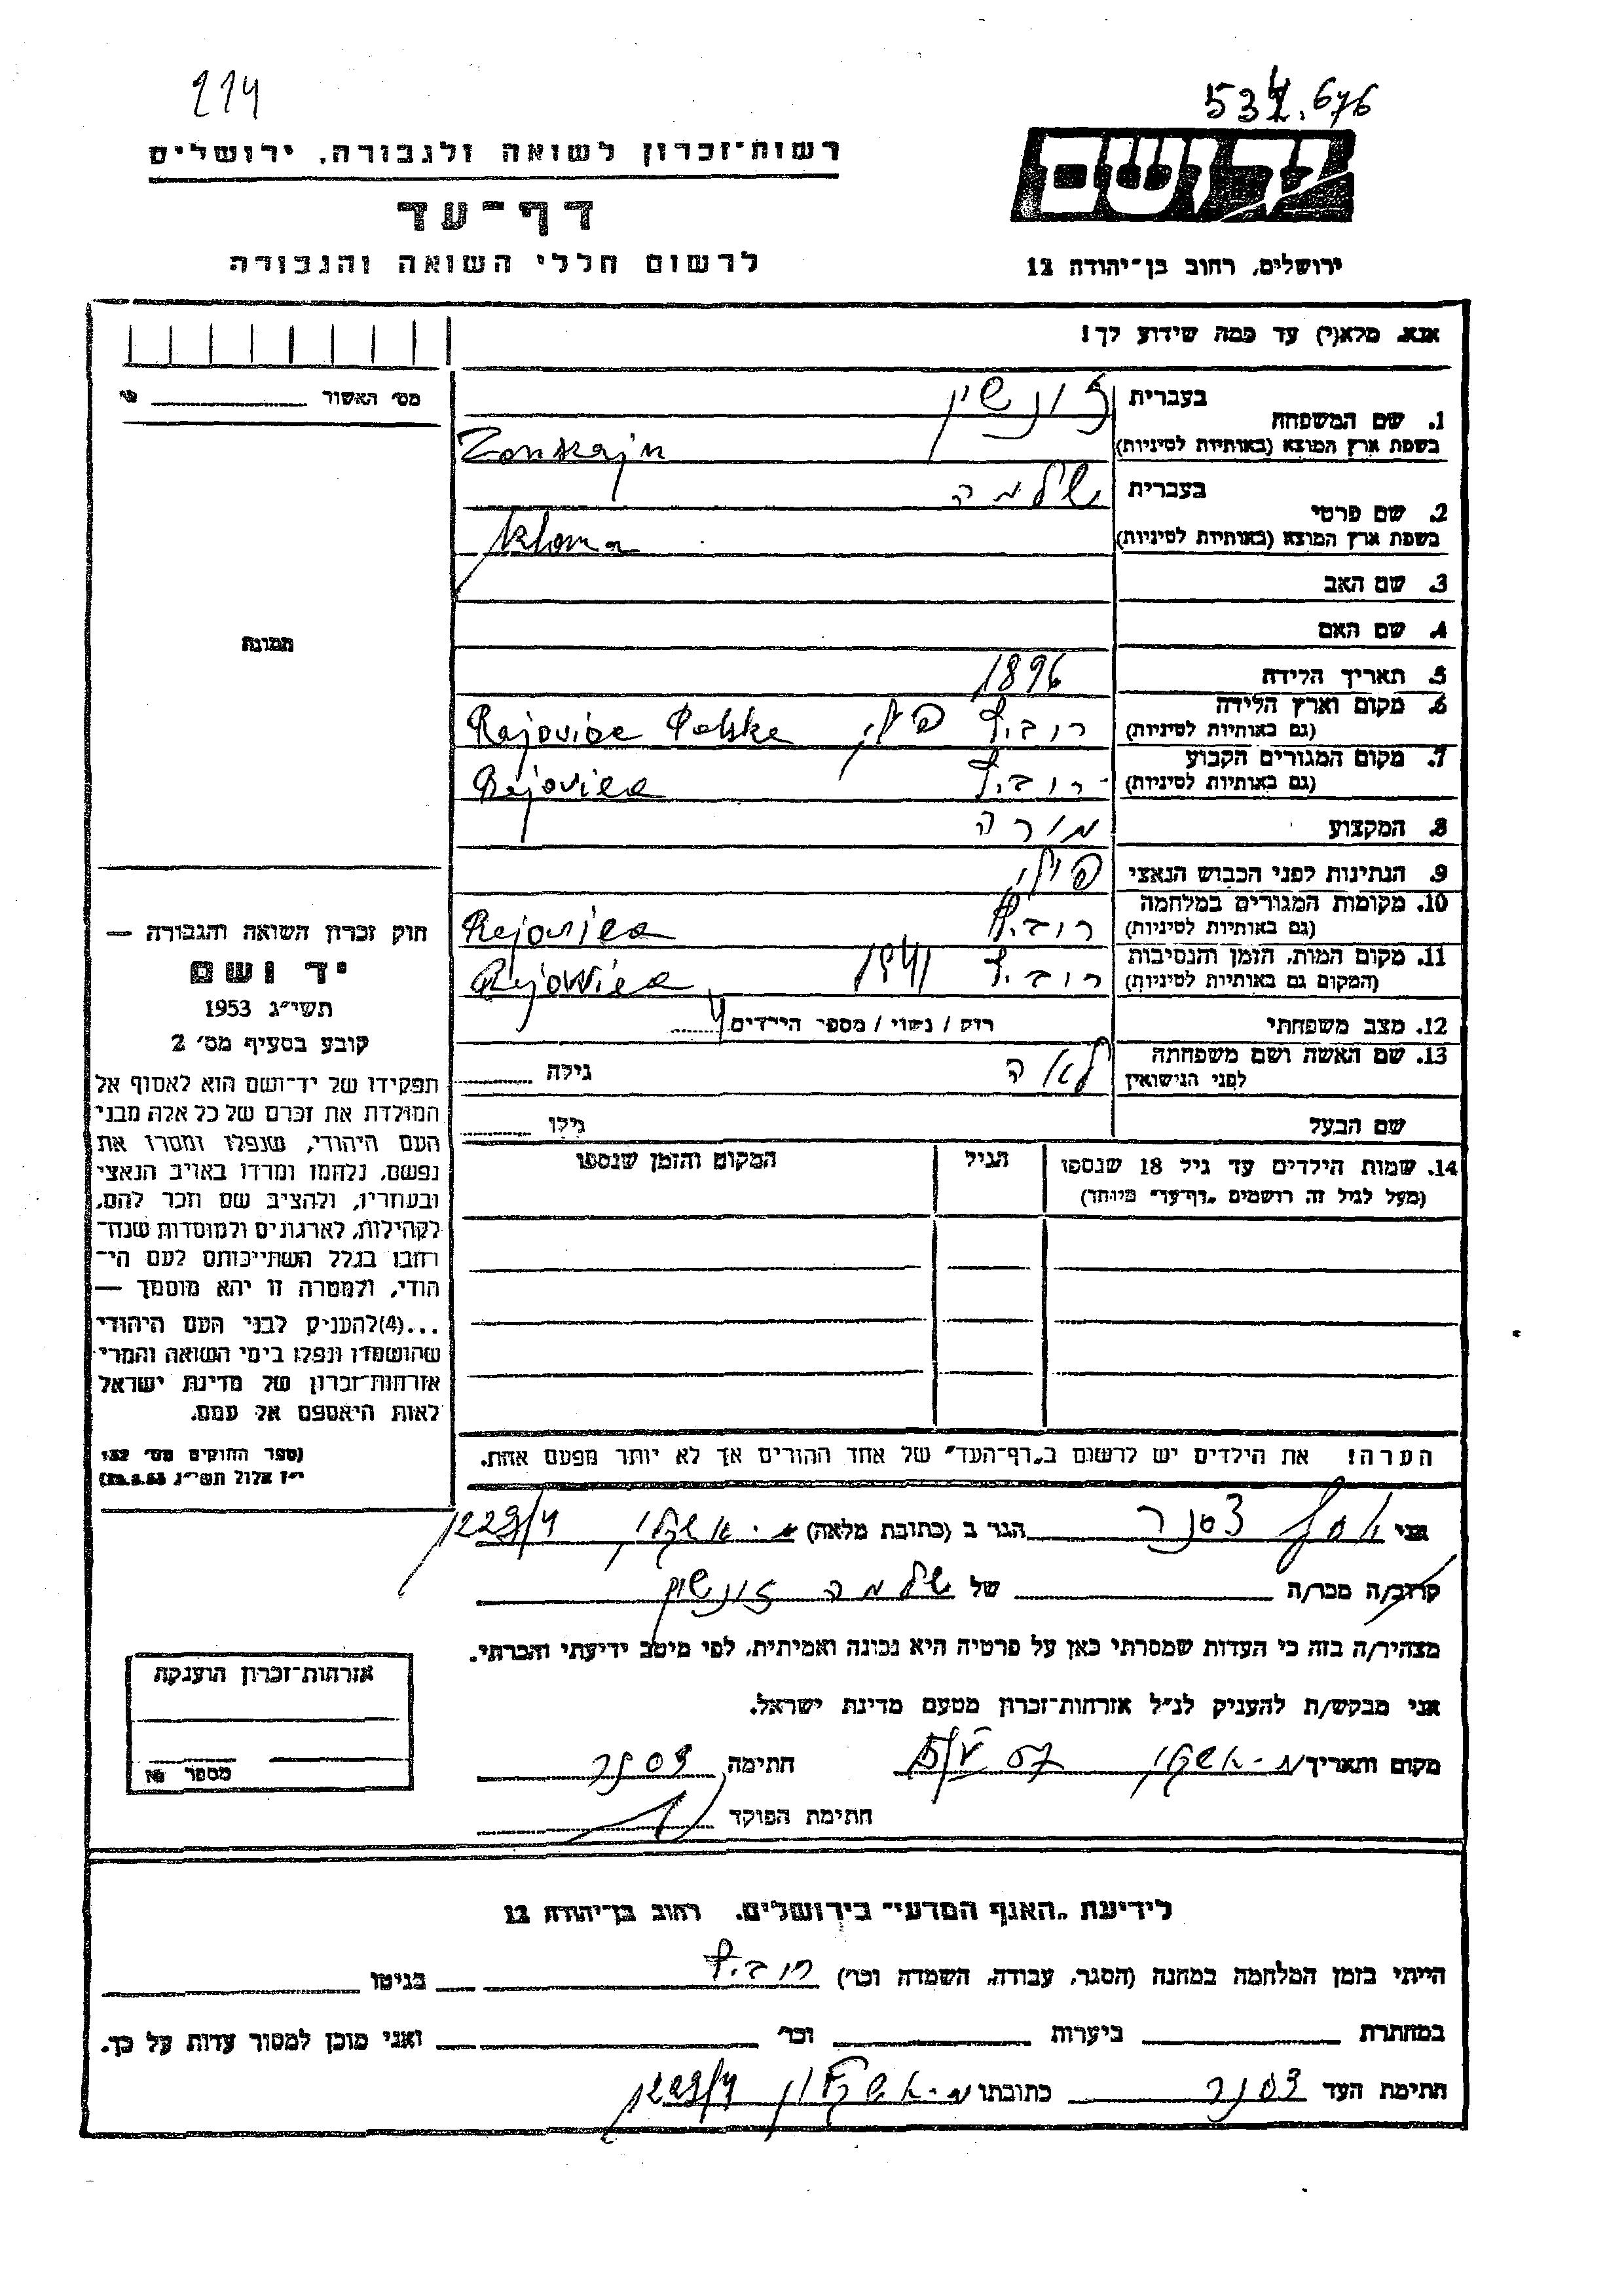 114
534.676
רשות־זכרון לשואה ולגבורה, ירושלים
דף־עד
לרשום חללי השואה והגבורה
יד ושם
ירושלים, רחוב בן־יהודה 12
אנא, מלא(י) עד כמה שידוע לך!
מס׳ האשור
1. שם המשפחה
בעברית זונשין
בשפת ארץ המוצא (באותיות לטיניות) Zonszajn
2. שם פרטי
בעברית שלמה
בשפת ארץ המוצא (באותיות לטיניות) szloma
3. שם האב
4. שם האם
5. תאריך הלידה 1896
6. מקום וארץ הלידה
(גם באותיות לטיניות) רוביץ פולין Rejoviec Polska
7. מקום המגורים הקבוע
(גם באותיות לטיניות) רוביץ Rejoviec
8. המקצוע מורה
9. הנתינות לפני הכבוש הנאצי
10. מקומות המגורים במלחמה
(גם באותיות לטיניות) רוביץ Rejoviec
11. מקום המות, הזמן והנסיבות
(המקום גם באותיות לטיניות) רוביץ 1941 Rejowiec
12. מצב משפחתי רוק / נשוי / מספר הילדים 4
13. שם האשה ושם משפחתה
לפני הנישואין לאה גילה
שם הבעל גילו
14. שמות הילדים עד גיל 18 שנספו
(מעל לגיל זה רושמים „דף־עד” מיוחד)
הגיל
המקום והזמן שנספו
הערה! את הילדים יש לרשום ב„דף־העד” של אחד ההורים אך לא יותר מפעם אחת.
תמונה
חוק זכרון השואה והגבורה —
יד ושם
תשי״ג 1953
קובע בסעיף מס׳ 2
תפקידו של יד־ושם הוא לאסוף אל
המולדת את זכרם של כל אלה מבני
העם היהודי, שנפלו ומסרו את
נפשם, נלחמו ומרדו באויב הנאצי
ובעוזריו, ולהציב שם וזכר להם,
לקהילות, לארגונים ולמוסדות שנח־
רבו בגלל השתייכותם לעם הי־
הודי, ולמטרה זו יהא מוסמך —
...(4)להעניק לבני העם היהודי
שהושמדו ונפלו בימי השואה והמרי
אזרחות־זכרון של מדינת ישראל
לאות היאספם אל עמם.
(ספר החוקים מס׳ 132
י״ז אלול תשי״ג 28.8.53)
אני צסנר הגר ב (כתובת מלאה) מ. אשקלון
קרוב/ה מכר/ה של שלמה זונשין
מצהיר/ה בזה כי העדות שמסרתי כאן על פרטיה היא נכונה ואמיתית, לפי מיטב ידיעתי והכרתי.
אני מבקש/ת להעניק לנ״ל אזרחות־זכרון מטעם מדינת ישראל.
מקום ותאריך מ. אשקלון חתימה צסנר
חתימת הפוקד
אזרחות־זכרון הוענקה
מספר
לידיעת „האגף המדעי” בירושלים, רחוב בן־יהודה 12
הייתי בזמן המלחמה במחנה (הסגר, עבודה, השמדה וכו׳) רוביץ בגיטו
במחתרת ביערות וכו׳ ואני מוכן למסור עדות על כך.
חתימת העד צסנר כתובתו מ. אשקלון